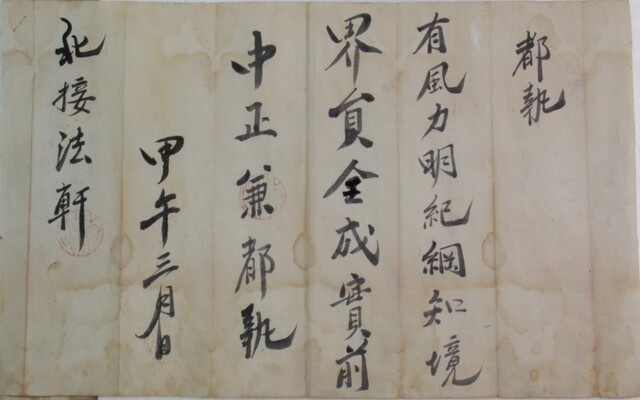 都執
有風力明紀綱知境
界貟全成實前
中正兼都執
甲午三月日
接法軒